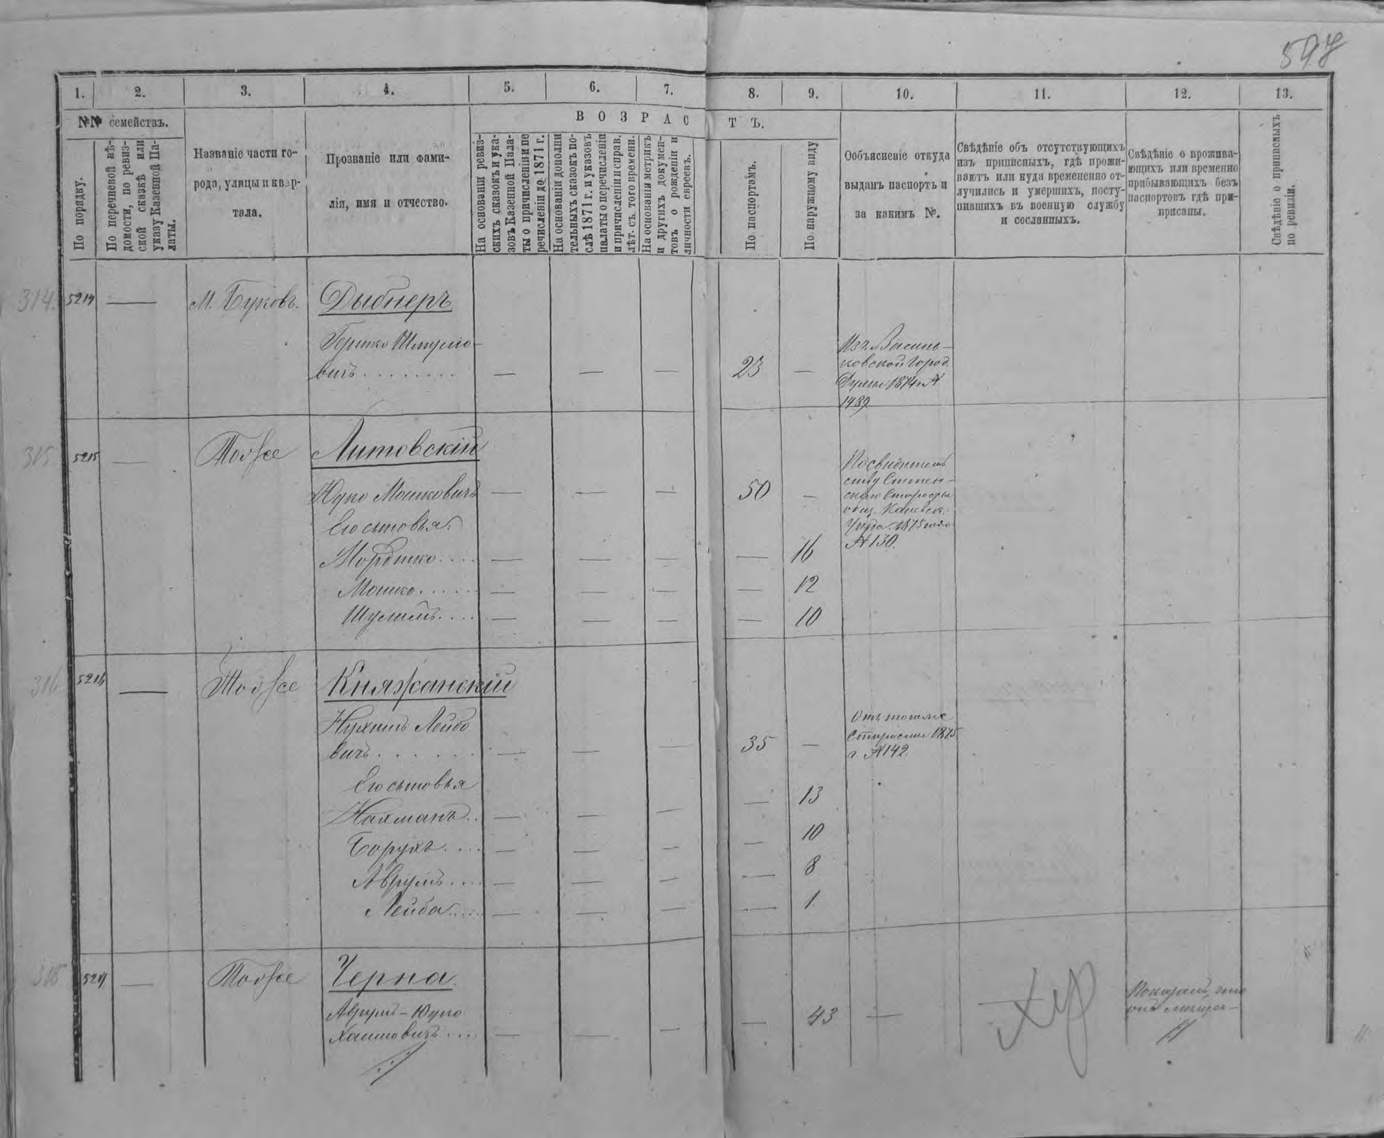 597
1. 2. 3. 4. 5. 6. 7. 8. 9. 10. 11. 12. 13.
№№ семействъ.
По порядку.
По перечневой вѣ-
домости, по ревиз-
ской сказкѣ или
указу Казенной Па-
латы.
Названіе части го-
рода, улицы и квар-
тала.
Прозваніе или фами-
лія, имя и отчество.
ВОЗРАСТЪ.
На основаніи ревиз-
скихъ сказокъ и ука-
зовъ Казенной Пала-
ты о причисленіи и пе
речисленіи до 1871 г.
На основаніи дополни
тельныхъ сказокъ по-
слѣ 1871 г. и указовъ
палаты о перечисленіи
и причисленіи и справ.
лѣт. съ того времени.
На основаніи метрикъ
и другихъ докумен-
товъ о рожденіи и
личности евреевъ.
По паспортамъ.
По наружному виду
Объясненіе откуда
выданъ паспортъ и
за какимъ №.
Свѣдѣніе объ отсутствующихъ
изъ приписныхъ, гдѣ прожи-
ваютъ или куда временно от-
лучились и умершихъ, посту-
пившихъ въ военную службу
и сосланныхъ.
Свѣдѣніе о прожива-
ющихъ или временно
прибывающихъ безъ
паспортовъ гдѣ при-
писаны.
Свѣдѣніе о приписныхъ
по ревизіи.
314. 5214 — М. Буковъ. Дыбнеръ
Гершко Шмуло-
вичъ — — — 23 —
Изъ Василь-
ковской Город.
Думы 1874 г. №
1489
315. 5215 — Тоже Литовскій
Юдко Мошковичъ — — — 50 —
Его сыновья.
Мордко — — — — 16
Мошко — — — — 12
Шулимъ — — — — 10
1875 года
№ 130.
316 5216 — Тоже Княжанскій
Нухимъ Лейбо
вичъ — — — 35 —
Отъ того же
Старосты 1875
г. № 142.
Его сыновья — 13
Нахманъ — — — — 10
Борухъ — — — — 8
Аврумъ — — — — 1
Лейба — — —
5217 — Тоже Черна
Аврумъ-Юдко
Хаимовичъ — — — — 43 —
Показалъ, что
онъ